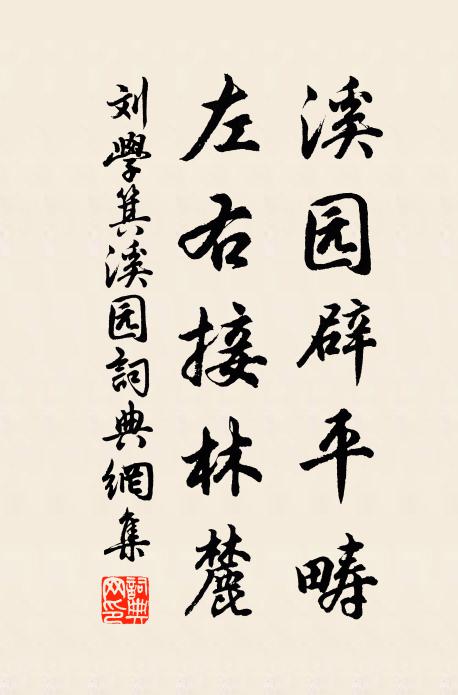 溪园辟平畴
左右接林麓
刘学箕溪园詞典網集
詞典网印